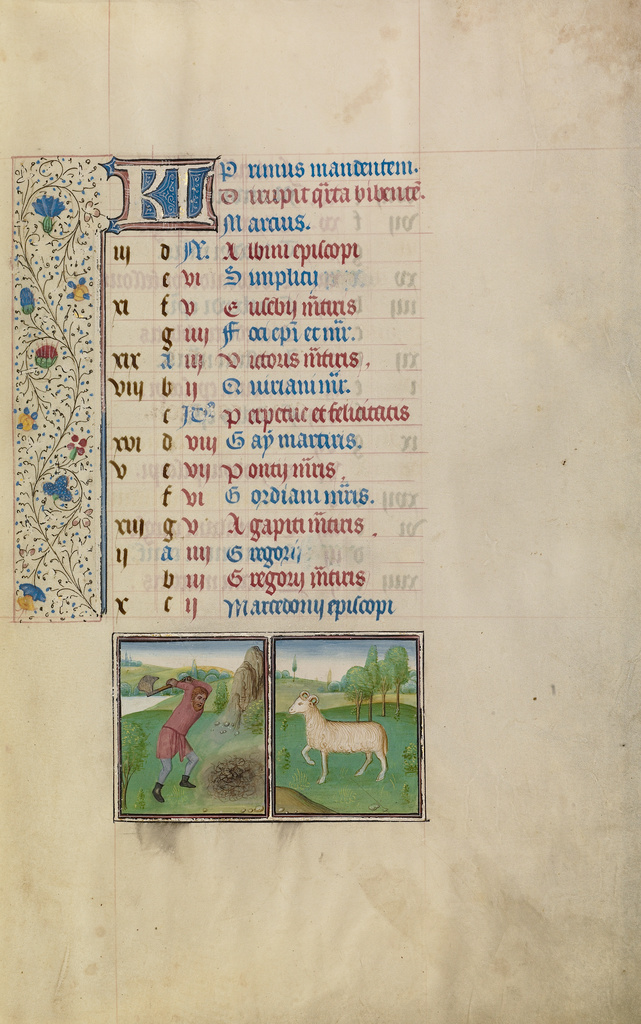 KL Primus mandentem.
Dirupit q̄rta bibentē.
Marcius.
iii d N. Albini episcopi
e vi Simplicij
xi f v Eusebij m̄tiris
g iiii Foci ep̄i et mr̄.
xix a iii Victoris m̄tiris.
viii b ii Quiriani mr̄.
c Perpetue et felicitatis
xvi d viii Gaÿ martiris.
v e vii Pontij mr̄is.
f vi Gordiani mr̄is.
xiii g v Agapiti m̄tiris.
ii a iiii Gregorij
b iii Gregorij m̄tiris
x c ii Marcedonij episcopi